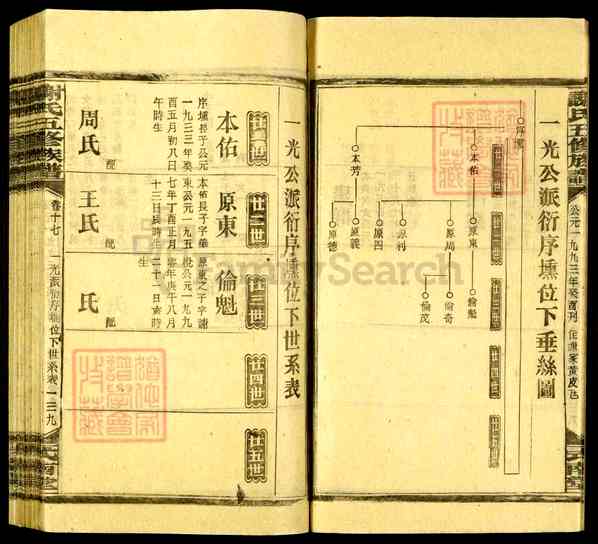 謝氏五修族譜
公元一九九三年癸酉刊
一光公派衍序壎位下垂絲圖
序壎
本佑
本芳
原東
原局
原利
原四
原義
原德
倫魁
倫奇
倫茂
一光公派衍序壎位下世系表
廿一世
廿二世
廿三世
廿四世
廿五世
本佑
序壎長子公元
一九三三年癸
酉五月初八日
午時生
周氏
配
原東
本佑長子字華
東公元一九五
七年丁酉正月
十三日辰時生
王氏
配
倫魁
原東之子字謀
批公元一九九
零年庚午八月
二十一日亥時
生
氏
配
謝氏五修族譜
卷十七
一光派衍序壎位下世系表
一二九
FamilySearch